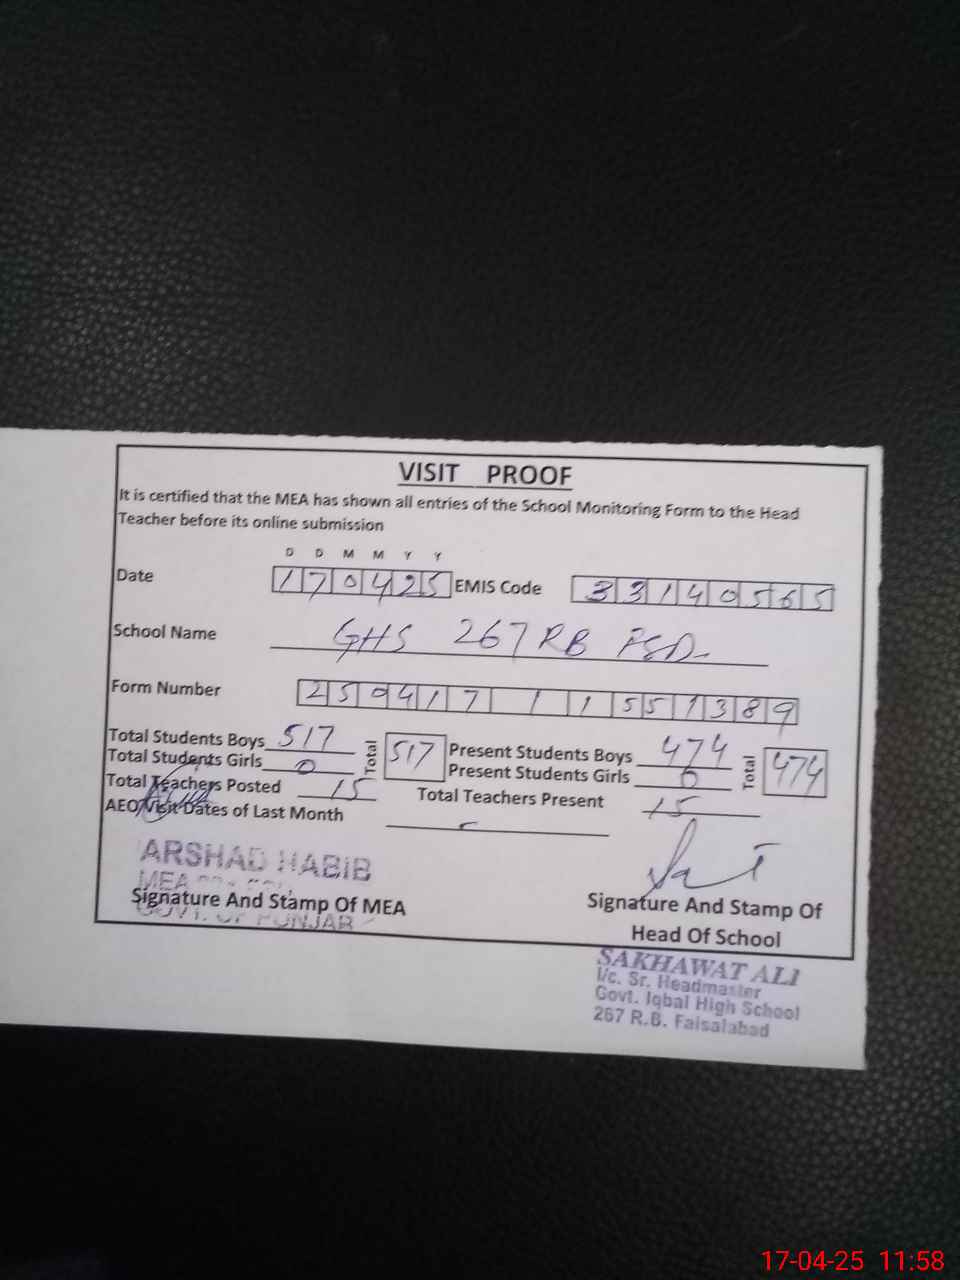 VISIT PROOF
It is certified that the MEA has shown all entries of the School Monitoring Form to the Head
Teacher before its online submission
D D M M Y Y
Date 170425 EMIS Code 33140565
School Name GHS 267 RB FSD
Form Number 259417 1 1551389
Total Students Boys 517 Total 517 Present Students Boys 474 Total 474
Total Students Girls 0 Present Students Girls 0
Total Teachers Posted 15 Total Teachers Present 15
AEO Visit Dates of Last Month -
ARSHAD HABIB
MEA
Signature And Stamp Of MEA
GOVT. OF PUNJAB
Signature And Stamp Of
Head Of School
SAKHAWAT ALI
I/c. Sr. Headmaster
Govt. Iqbal High School
267 R.B. Faisalabad
17-04-25 11:58